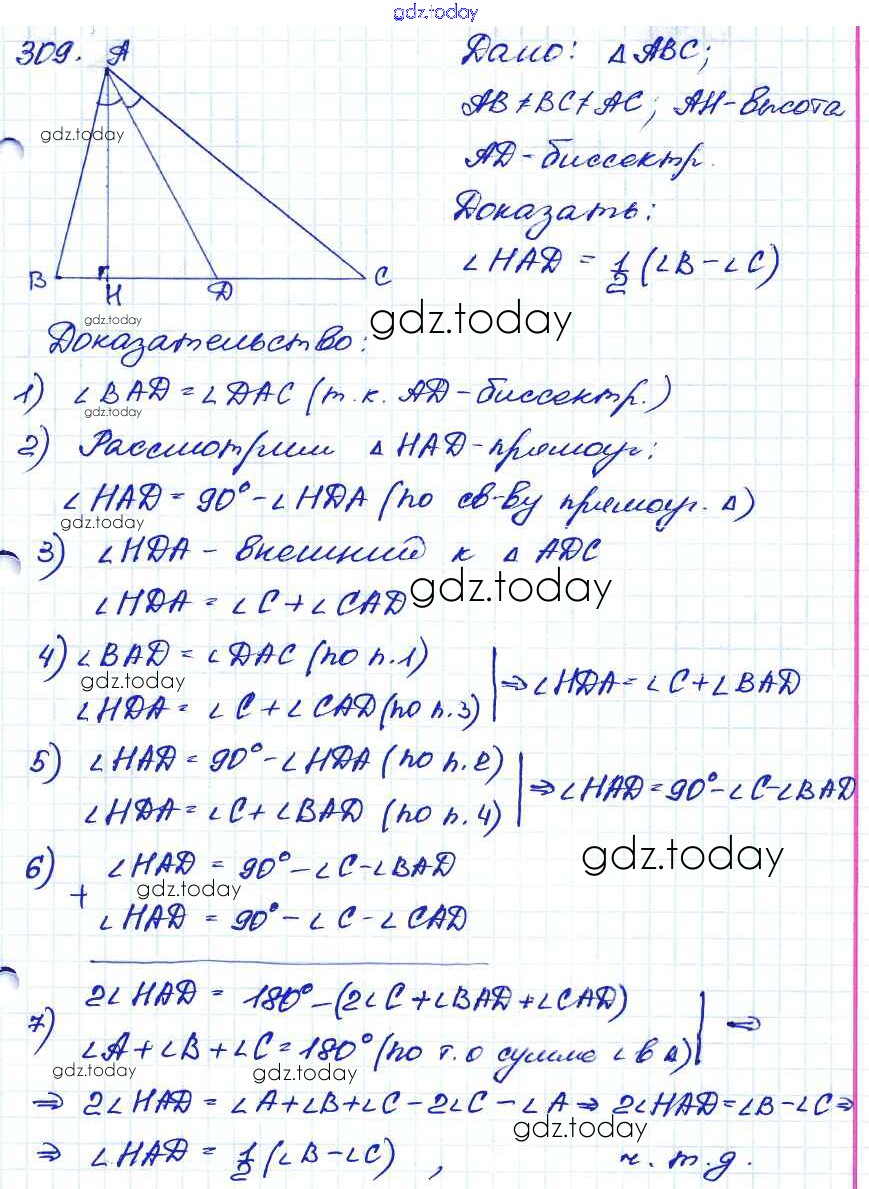 gdz.today
309. A
Дано: △ABC;
AB≠BC≠AC; AH-высота
gdz.today
AD-биссектр.
Доказать:
∠HAD = 1/2 (∠B-∠C)
B H D C
gdz.today
gdz.today
Доказательство:
1) ∠BAD=∠DAC (т.к. AD-биссектр.)
gdz.today
2) Рассмотрим △HAD-прямоуг:
∠HAD=90°-∠HDA (по св-ву прямоуг. △)
gdz.today
3) ∠HDA - внешний к △ADC
∠HDA = ∠C+∠CAD
gdz.today
4) ∠BAD = ∠DAC (по п.1)
gdz.today
∠HDA = ∠C+∠CAD (по п.3) ⇒ ∠HDA=∠C+∠BAD
5) ∠HAD=90°-∠HDA (по п.2)
∠HDA=∠C+∠BAD (по п.4) ⇒ ∠HAD=90°-∠C-∠BAD
6) ∠HAD = 90°-∠C-∠BAD
gdz.today
gdz.today
+
∠HAD = 90°-∠C-∠CAD
2∠HAD = 180°-(2∠C+∠BAD+∠CAD)
7) ∠A+∠B+∠C=180° (по т.о сумме ∠ в △) ⇒
gdz.today
gdz.today
⇒ 2∠HAD=∠A+∠B+∠C-2∠C-∠A ⇒ 2∠HAD=∠B-∠C ⇒
gdz.today
⇒ ∠HAD = 1/2 (∠B-∠C), ч.т.д.